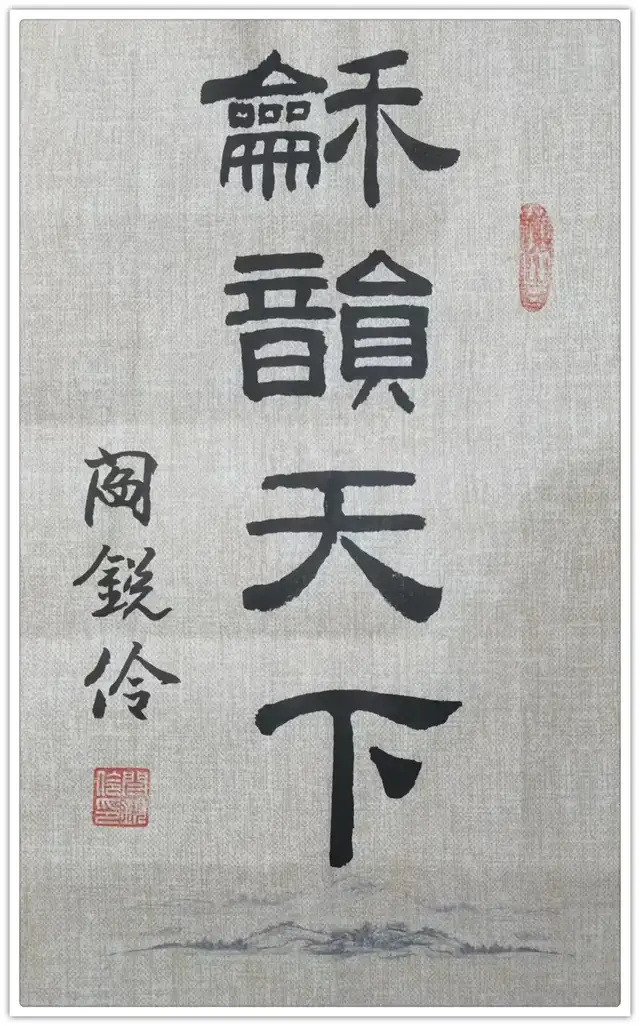 龢韻天下
阎鋭伶